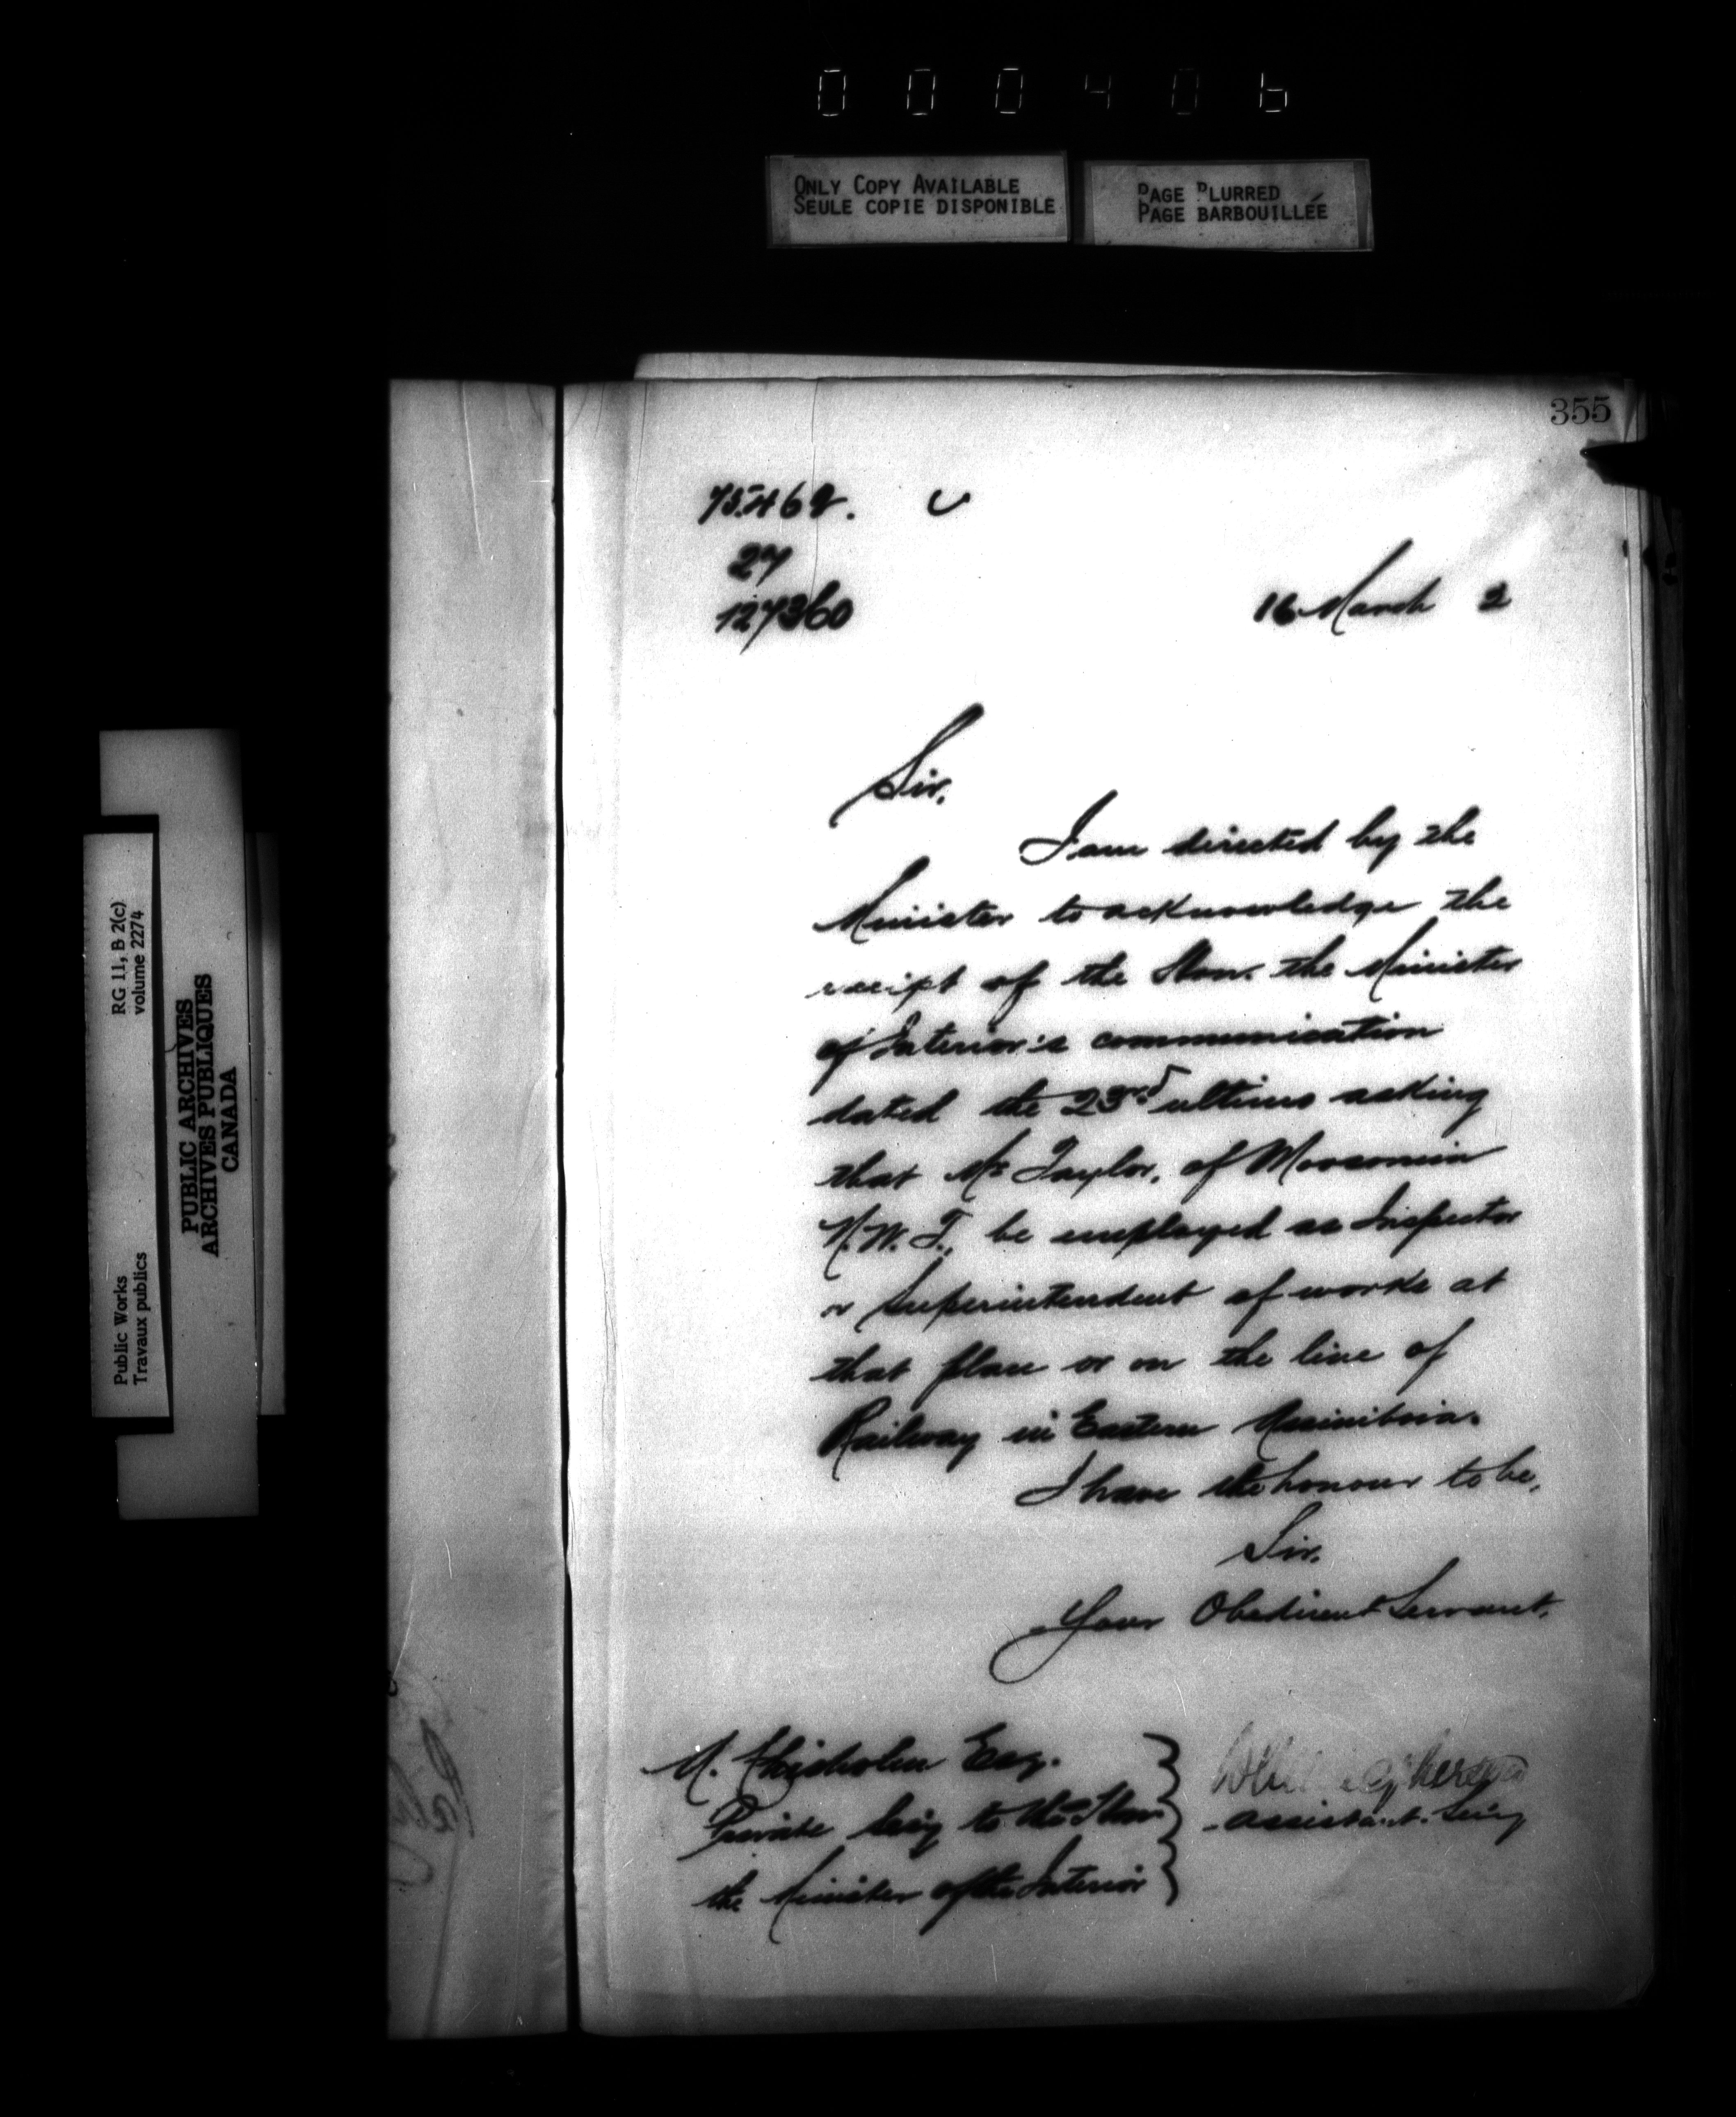 000406
ONLY COPY AVAILABLE
SEULE COPIE DISPONIBLE
PAGE BLURRED
PAGE BARBOUILLÉE
355
27
127360
16 March 2
Sir,
I am directed by the
Minister to acknowledge the
receipt of the Hon. the Minister
of Interior's communication
dated the 23rd ultimo asking
that Mr Taylor, of Moosomin
N.W.T., be employed as Inspector
or Superintendent of works at
that place or on the line of
Railway in Eastern Assiniboia.
I have the honour to be,
Sir,
Your Obedient Servant,
Chisholm Esq.
Private Secy to the Hon
the Minister of the Interior
Assistant Secy
Public Works
Travaux publics
RG 11, B 2(c)
volume 2274
PUBLIC ARCHIVES
ARCHIVES PUBLIQUES
CANADA